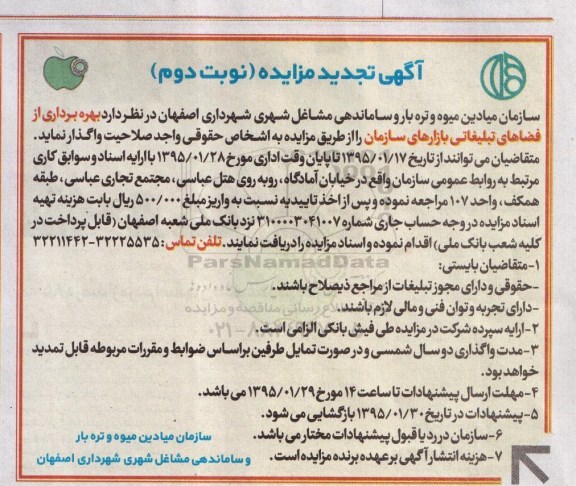 آگهی تجدید مزایده (نوبت دوم)
سازمان میادین میوه و تره بار و ساماندهی مشاغل شهری شهرداری اصفهان در نظر دارد بهره برداری از
فضاهای تبلیغاتی بازارهای سازمان را از طریق مزایده به اشخاص حقوقی واجد صلاحیت واگذار نماید.
متقاضیان می توانند از تاریخ ۱۳۹۵/۰۱/۱۷ تا پایان وقت اداری مورخ ۱۳۹۵/۰۱/۲۸ با ارایه اسناد و سوابق کاری
مرتبط به روابط عمومی سازمان واقع در خیابان آمادگاه، روبه روی هتل عباسی، مجتمع تجاری عباسی، طبقه
همکف، واحد ۱۰۷ مراجعه نموده و پس از اخذ تاییدیه نسبت به واریز مبلغ ۵۰۰/۰۰۰ ریال بابت هزینه تهیه
اسناد مزایده در وجه حساب جاری شماره ۳۱۰۰۰۰۳۰۴۱۰۰۷ نزد بانک ملی شعبه اصفهان (قابل پرداخت در
کلیه شعب بانک ملی) اقدام نموده و اسناد مزایده را دریافت نمایند. تلفن تماس: ۳۲۲۲۵۵۳۵-۳۲۲۱۱۴۴۲
ParsNamadData
۱-متقاضیان بایستی:
-حقوقی و دارای مجوز تبلیغات از مراجع ذیصلاح باشند.
-دارای تجربه و توان فنی و مالی لازم باشند.
۲-ارایه سپرده شرکت در مزایده طی فیش بانکی الزامی است.
۳-مدت واگذاری دو سال شمسی و در صورت تمایل طرفین براساس ضوابط و مقررات مربوطه قابل تمدید
خواهد بود.
۴-مهلت ارسال پیشنهادات تا ساعت ۱۴ مورخ ۱۳۹۵/۰۱/۲۹ می باشد.
۵-پیشنهادات در تاریخ ۱۳۹۵/۰۱/۳۰ بازگشایی می شود.
۶-سازمان در رد یا قبول پیشنهادات مختار می باشد.
۷-هزینه انتشار آگهی بر عهده برنده مزایده است.
سازمان میادین میوه و تره بار
و ساماندهی مشاغل شهری شهرداری اصفهان